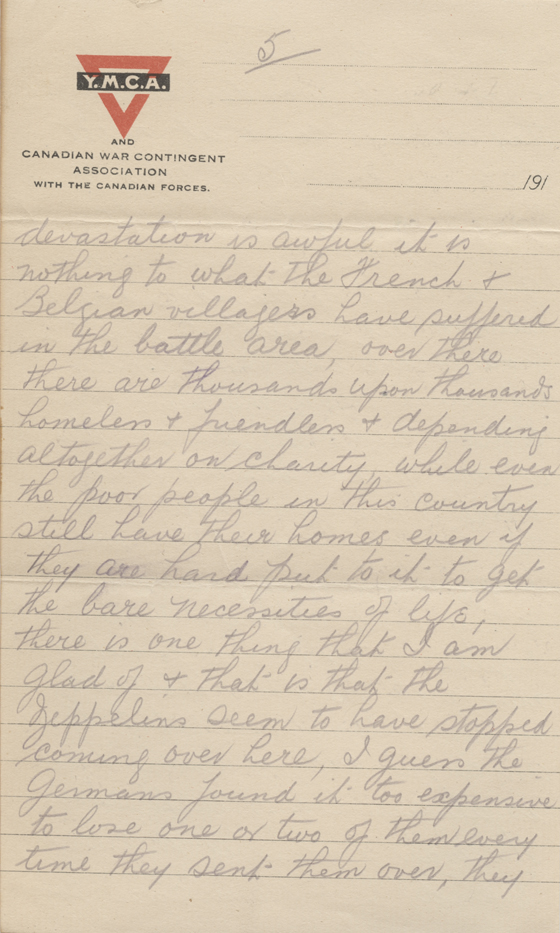 5
Y.M.C.A.
AND
CANADIAN WAR CONTINGENT
ASSOCIATION
WITH THE CANADIAN FORCES.
191
devastation is awful it is
nothing to what the French &
Belgian villagers have suffered
in the battle area, over there
there are thousands upon thousands
homeless & friendless & depending
altogether on charity, while even
the poor people in this country
still have their homes even if
they are hard put to it to get
the bare necessities of life,
there is one thing that I am
glad of & that is that the
Zeppelins seem to have stopped
coming over here, I guess the
Germans found it too expensive
to lose one or two of them every
time they sent them over, they